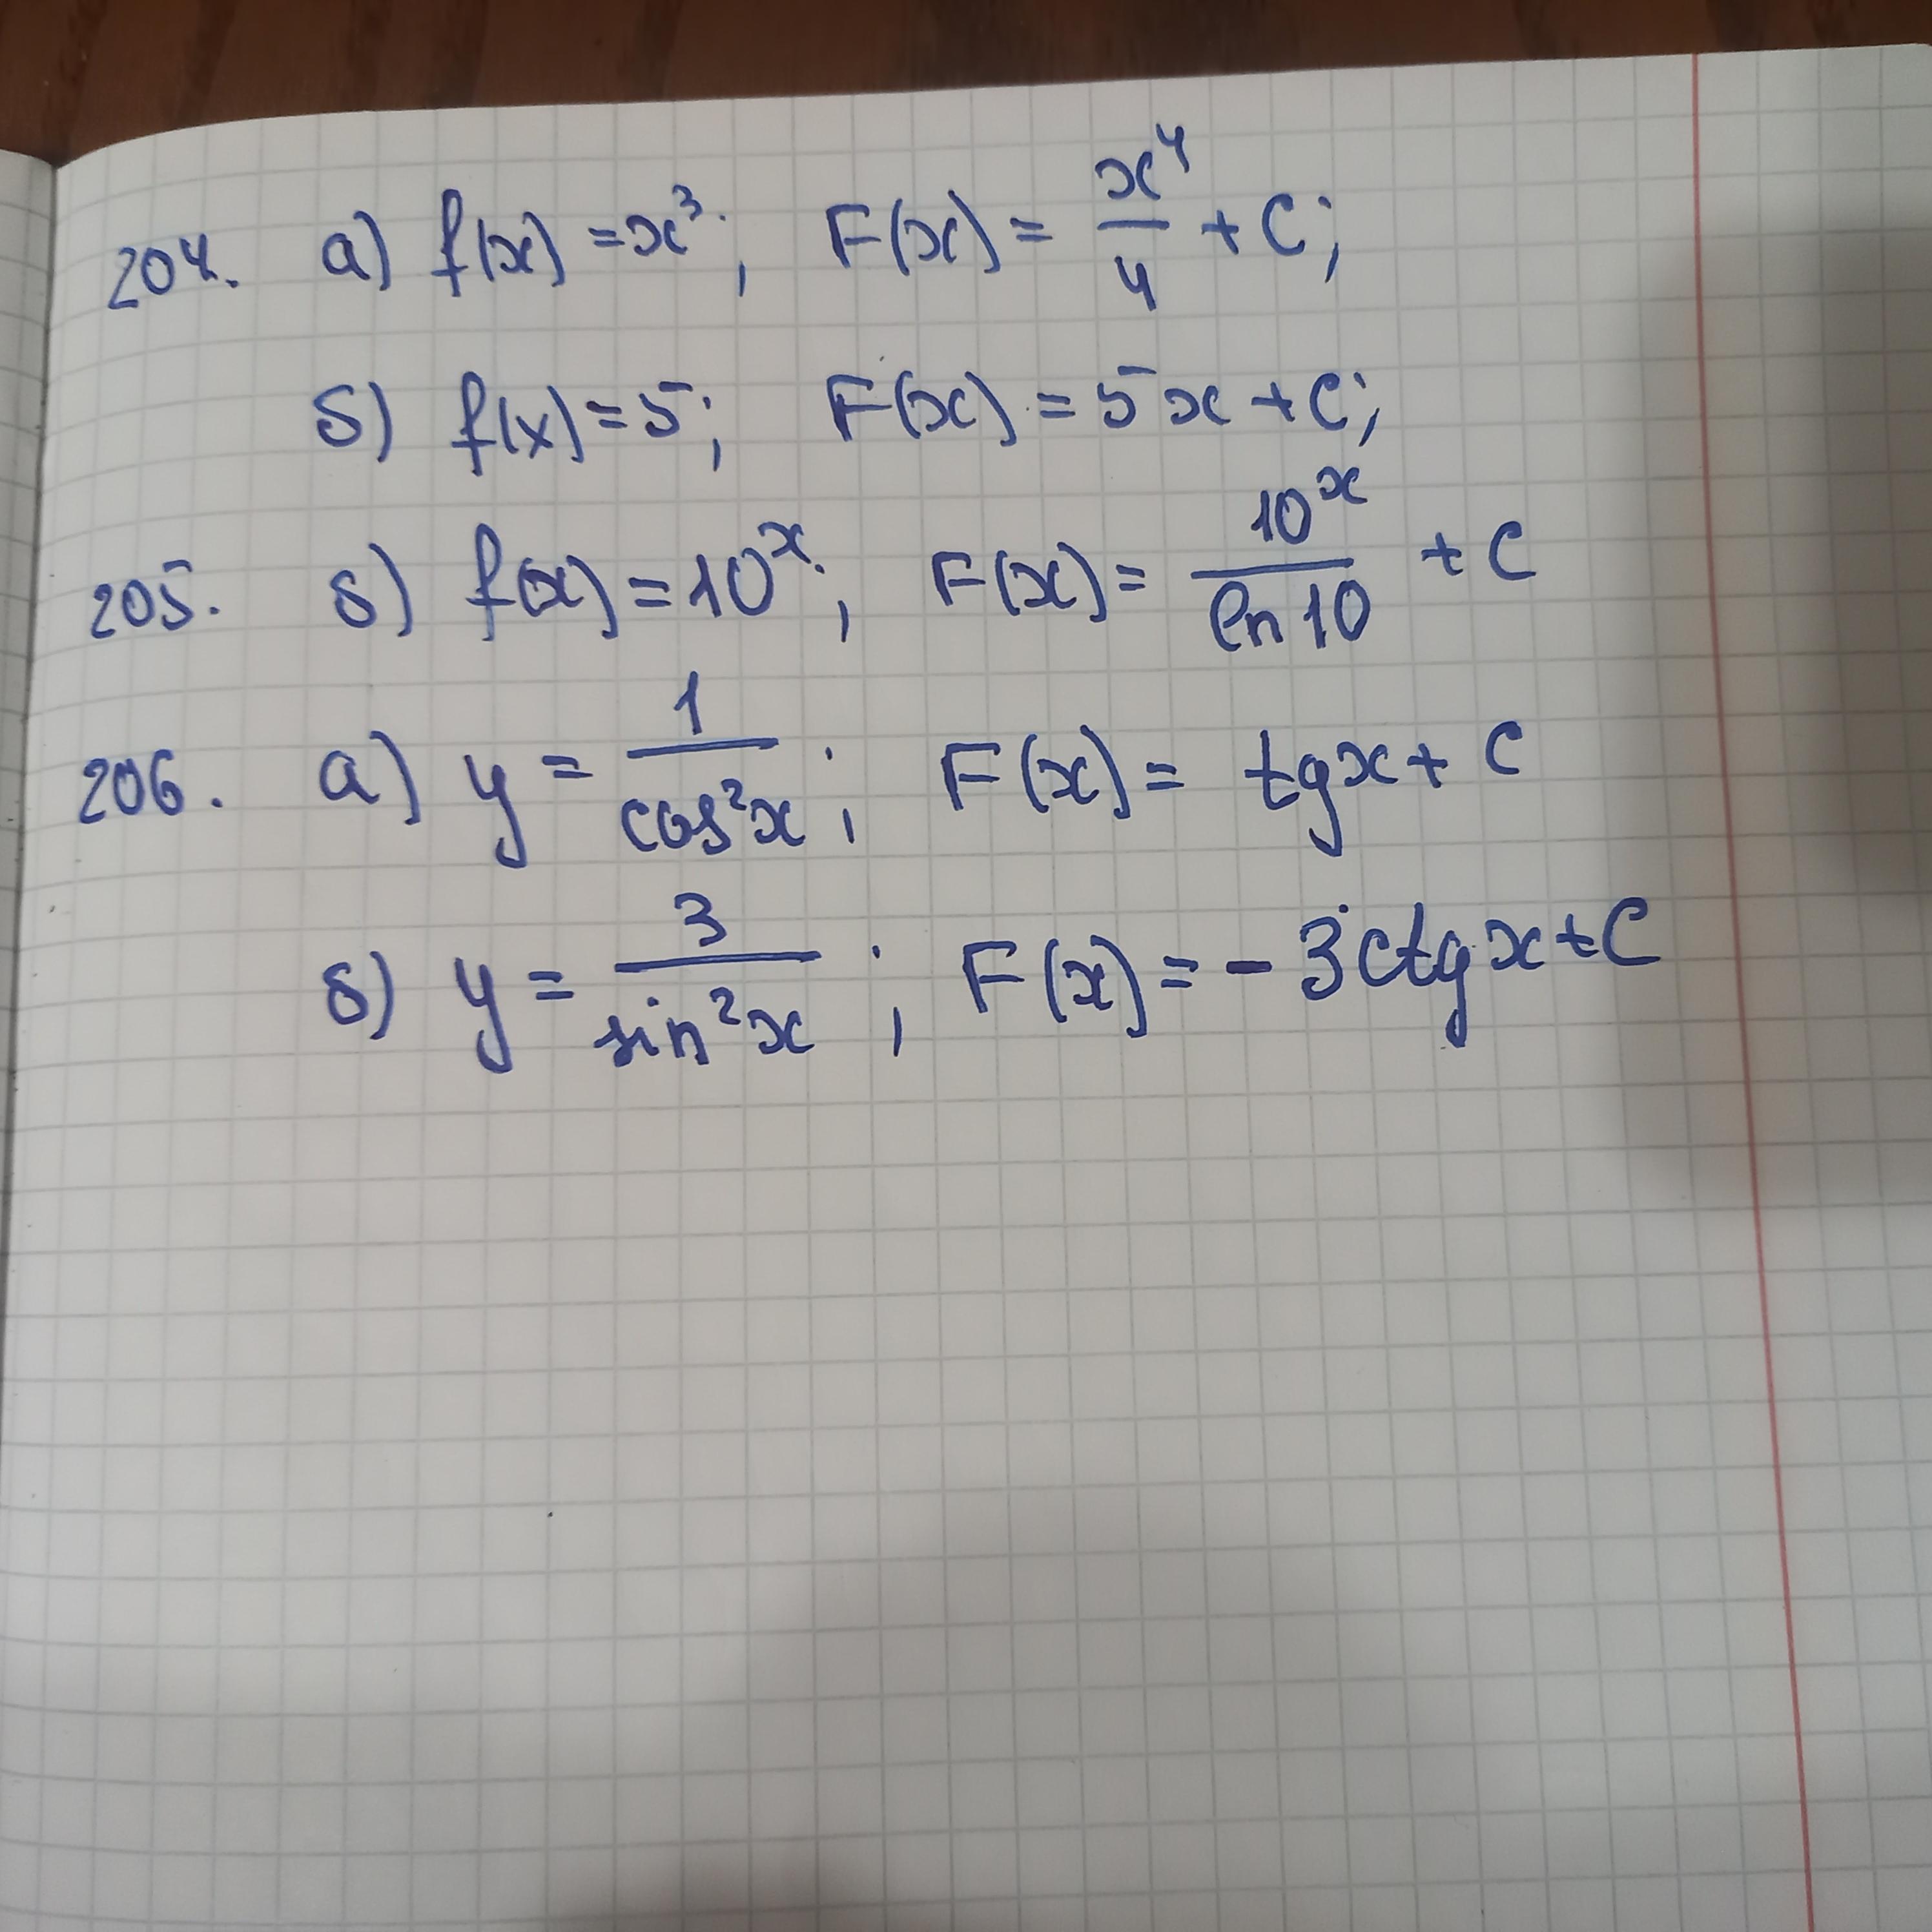 204. а) f(x) = x³; F(x) = x⁴/4 + C;
б) f(x) = 5; F(x) = 5x + C;
205. б) f(x) = 10ˣ; F(x) = 10ˣ/ln 10 + C
206. а) y = 1/cos²x; F(x) = tg x + C
б) y = 3/sin²x; F(x) = - 3 ctg x + C